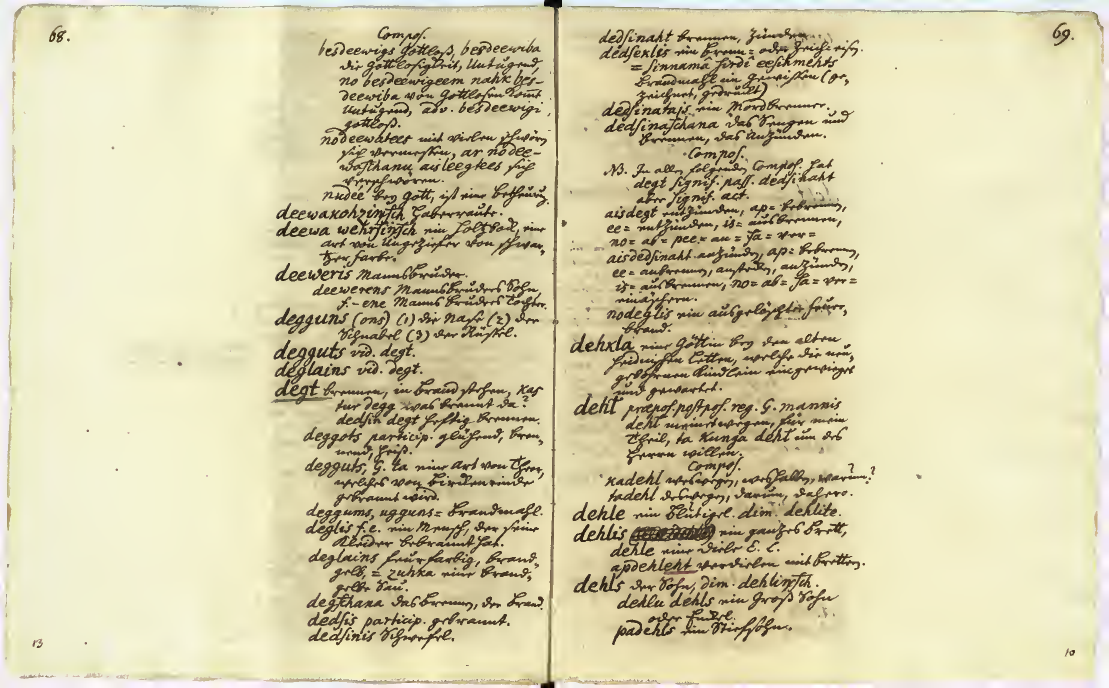 68.
Compos.
besdeewigs Gottloß, besdeewiba
die Gottlosigkeit, Untugend
no besdeewigeem nahk bes-
deewiba von Gottlosen komt
Untugend, adv. besdeewigi
gottloß.
nodeewatees mit vielen schwören
sich vermessen, ar nodee-
waschanu aisleegtees sich
verschwören.
nudee bey Gott, ist eine betheurung.
deewakohzinsch Haberraute.
deewa wehrsinsch ein Holtzbock, eine
art von Ungeziefer von schwar-
tzer farbe.
deeweris Mannsbruder.
deewerens Mannsbruders Sohn
f. -ene Mannsbruders Tochter.
degguns (ons) (1) die Nase (2) der
Schnabel (3) der Rüssel.
degguts vid. degt.
deglains vid. degt.
degt brennen, in brand stehen, kas
tur degg was brennt da?
dedsin degt heftig brennen.
deggots particip. glühend, bren-
nend, heiß.
degguts, G. ta eine Art von Theer,
welches von birckenrinde
gebrannt wird.
deggums, ugguns= brandmahl.
deglis f.e. ein Mensch, der seine
Kleider bebrannt hat.
deglains feurfarbig, brand-
gelb, = zuhka eine brand-
gelbe Sau.
degschana das brennen, der brand.
dedsis particip. gebrannt.
dedsinis Schwefel.
13
69.
dedsinaht brennen, zünden
dedseklis ein brenn= oder Zeich-eisen
= sinnamâ sirdî eesihmehts
brandmahl im gewissen (ge-
zeichnet, gedrückt)
dedsinatajs ein Mordbrenner.
dedsinaschana das Sengen und
brennen, das Anzünden.
Compos.
NB. In allen folgenden Compos. hat
degt signif. pass. dedsinaht
aber signif. act.
aisdegt entzünden, ap= bebrennen,
ee= entzünden, is= ausbrennen,
no= at= pee= an= sa= ver=
aisdedsinaht anzünden, ap= bebrennen,
ee= anbrennen, anstecken, anzünden,
is= ausbrennen, no= ab= sa= ver=
einäschern.
nodeglis ein ausgelöschter feuer-
brand.
dehkla eine Göttin bey den alten
heidnischen Letten, welche die neu-
gebohrnen Kindlein eingewieget
und gewartet.
dehl præpos. postpos. reg. G. mannis
dehl meinetwegen, für mein
Theil, ta kunga dehl um des
Herrn willen.
Compos.
kadehl weswegen, weshalben, warum?
tadehl deswegen, darum, dahero.
dehle ein Blutigel. dim. dehlite.
dehlis ein gantzes brett,
dehle eine Diele E. L.
apdehleht verdielen mit bretten.
dehls der Sohn, dim. dehlinsch.
dehlu dehls ein Groß Sohn
oder Enckel.
padehls ein Stiefsohn.
10